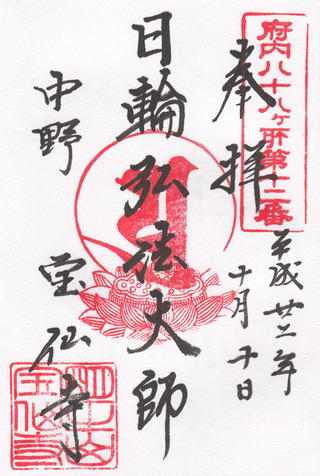 府内八十八ヶ所第十二番
奉拝
平成廿二年
十月十日
日輪弘法大師
中野
宝仙寺